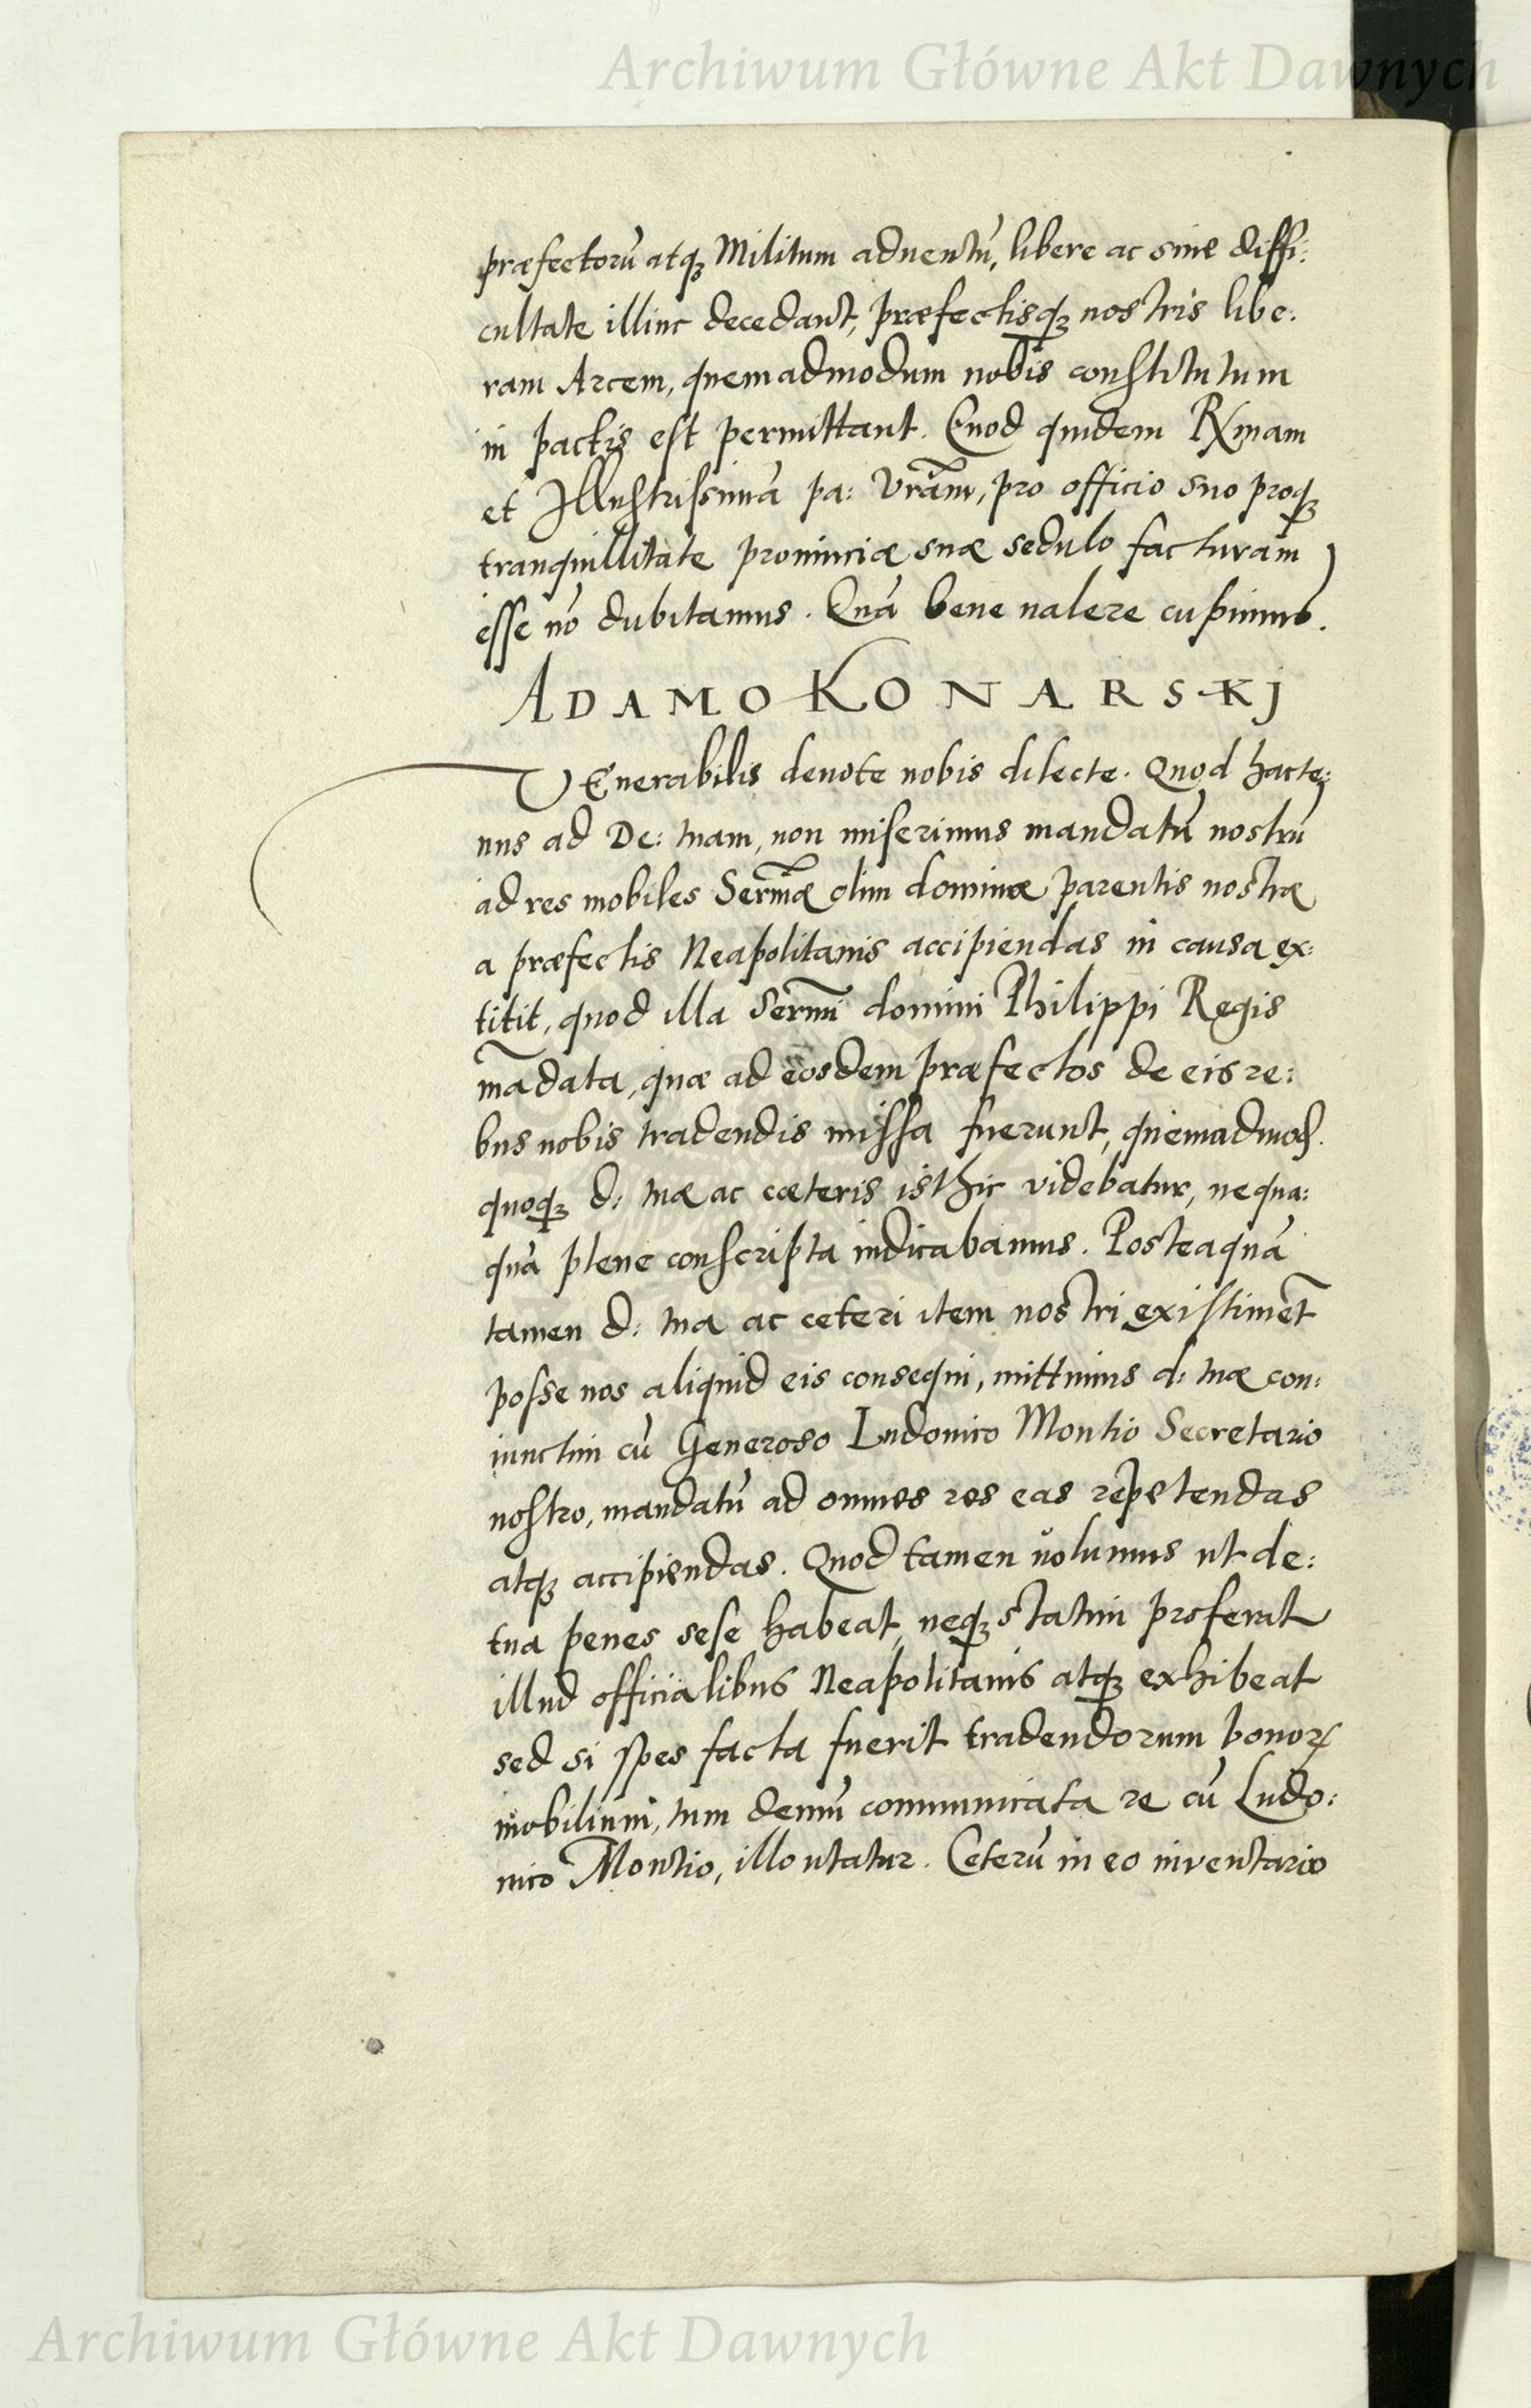 Archiwum Główne Akt Dawnych
præfectorū atq₃ Militum aduentū, libere ac sine diffi:
cultate illinc decedant, præfectisq₃ nostris libe:
ram Arcem, quemadmodum nobis constitutum
in pactis est permittant. Quod quidem Rxmam
et Illustrissimā pa: Vrām, pro officio suo proq₃
tranquillitate prouinciæ suæ sedulo facturam
esse nō dubitamus. Quā bene ualere cupimus.
ADAMO KONARSKJ
VEnerabilis deuote nobis dilecte. Quod hacte:
nus ad De: tuam, non miserimus mandatū nostrū
ad res mobiles Sermæ olim dominæ parentis nostræ
a præfectis Neapolitanis accipiendas in causa ex:
titit, quod illa Sermi domini Philippi Regis
mādata, quæ ad eosdem præfectos de eis re:
bus nobis tradendis missa fuerunt, quemadmod.
quoq₃ d: tuæ ac cæteris isthic videbatur, nequa:
quā plene conscripta iudicabamus. Posteaquā
tamen d: tua ac ceteri item nostri existimēt
posse nos aliquid eis consequi, mittimus d: tuæ con:
iunctim cū Generoso Ludouico Montio Secretario
nostro, mandatū ad omnes res eas repetendas
atq₃ accipiendas. Quod tamen uolumus ut de:
tua penes sese habeat, neq₃ statim proferat
illud officialibus Neapolitanis atq₃ exhibeat
sed si spes facta fuerit tradendorum bonorꝝ
mobilium, tum demū communicata re cū Ludo:
uico Montio, illo utatur. Ceterū in eo inventario
Archiwum Główne Akt Dawnych